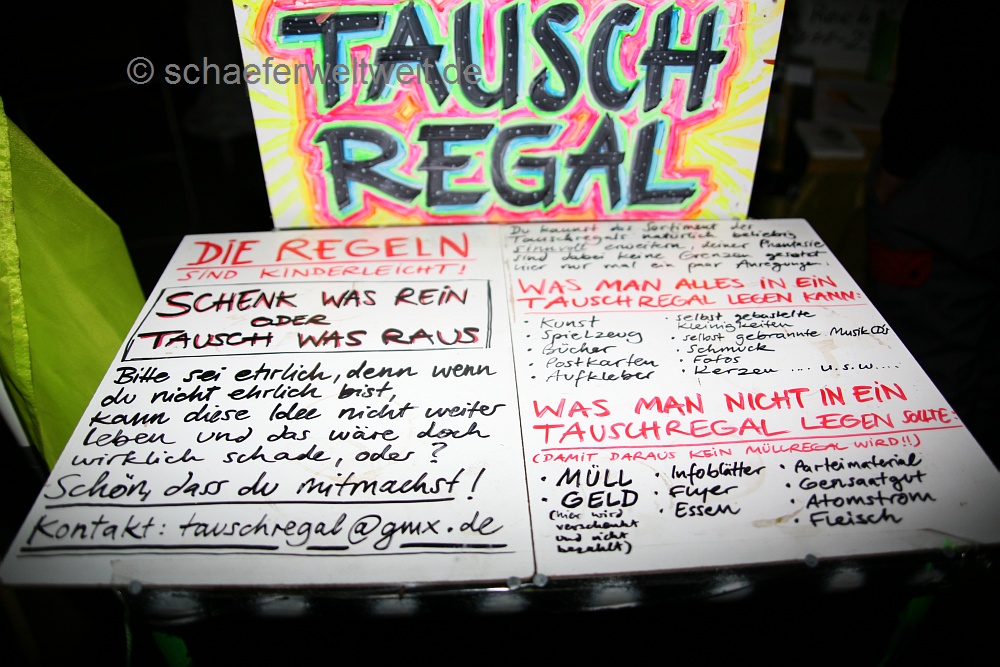 © schaeferweltweit.de
TAUSCH
REGAL
DIE REGELN
SIND KINDERLEICHT!
SCHENK WAS REIN
ODER
TAUSCH WAS RAUS
Bitte sei ehrlich, denn wenn
du nicht ehrlich bist,
kann diese Idee nicht weiter
leben und das wäre doch
wirklich schade, oder?
Schön, dass du mitmachst!
Kontakt: tauschregal@gmx.de
Du kannst das Sortiment des
Tauschregals natürlich beliebig
sinnvoll erweitern, deiner Phantasie
sind dabei keine Grenzen gesetzt
hier nur mal ein paar Anregungen:
WAS MAN ALLES IN EIN
TAUSCHREGAL LEGEN KANN:
· Kunst
· Spielzeug
· Bücher
· Postkarten
· Aufkleber
· selbst gebastelte
Kleinigkeiten
· selbst gebrannte Musik CDs
· Schmuck
· Fotos
· Kerzen .... u.s.w....
WAS MAN NICHT IN EIN
TAUSCHREGAL LEGEN SOLLTE:
(DAMIT DARAUS KEIN MÜLLREGAL WIRD!!)
· MÜLL
· GELD
(hier wird
verschenkt
und nicht
bezahlt)
· Infoblätter
· Flyer
· Essen
· Parteimaterial
· Gensaatgut
· Atomstrom
· Fleisch